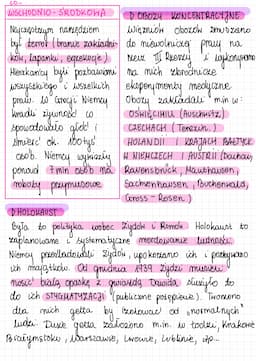 WSCHODNIO-ŚRODKOWA
Najczęstszym narzędziem
był terror (branie zakładni-
ków, łapanki, egzekucje).
Mieszkańcy byli pozbawieni
wszystkiego i wszelkich
praw. W Grecji Niemcy
kradli żywność co
spowodowało głód i
śmierć ok. 100 tyś
osób. Niemcy wywieźli
ponad 7 mln osób na
roboty przymusowe.
OBOZY KONCENTRACYJNE
Więźniów obozów zmuszano
do niewolniczej pracy na
rzecz III Rzeszy i wykonywano
na nich zbrodnicze
eksperymenty medyczne
Obozy zakładali min w:
OŚWIĘCIMIU (Auschwitz)
CZECHACH (Terezin)
HOLANDII I KRAJACH BAŁTYCK
W NIEMCZECH I AUSTRII (Dachau,
Ravensbrück, Mauthausen,
Sachsenhausen, Buchenwald,
Gross-Rosen)
HOLOKAUST
Była to polityka wobec Żydów i Romów. Holokaust to
zaplanowane i systematyczne mordowanie ludności.
Niemcy prześladowali Żydów, upokarzano ich i
ich majątku. Od grudnia 1939 Żydzi musieli
nosić białą opaskę z gwiazdą Dawida służyło to
do ich STYGMATYZACJI (publiczne potępienie). Tworzono
dla nich getta by izolować od "normalnych"
ludzi. Duże getta założono m.in. w Łodzi, Krakowie
Białymstoku, Warszawie, Lwowie, Lublinie, itp.